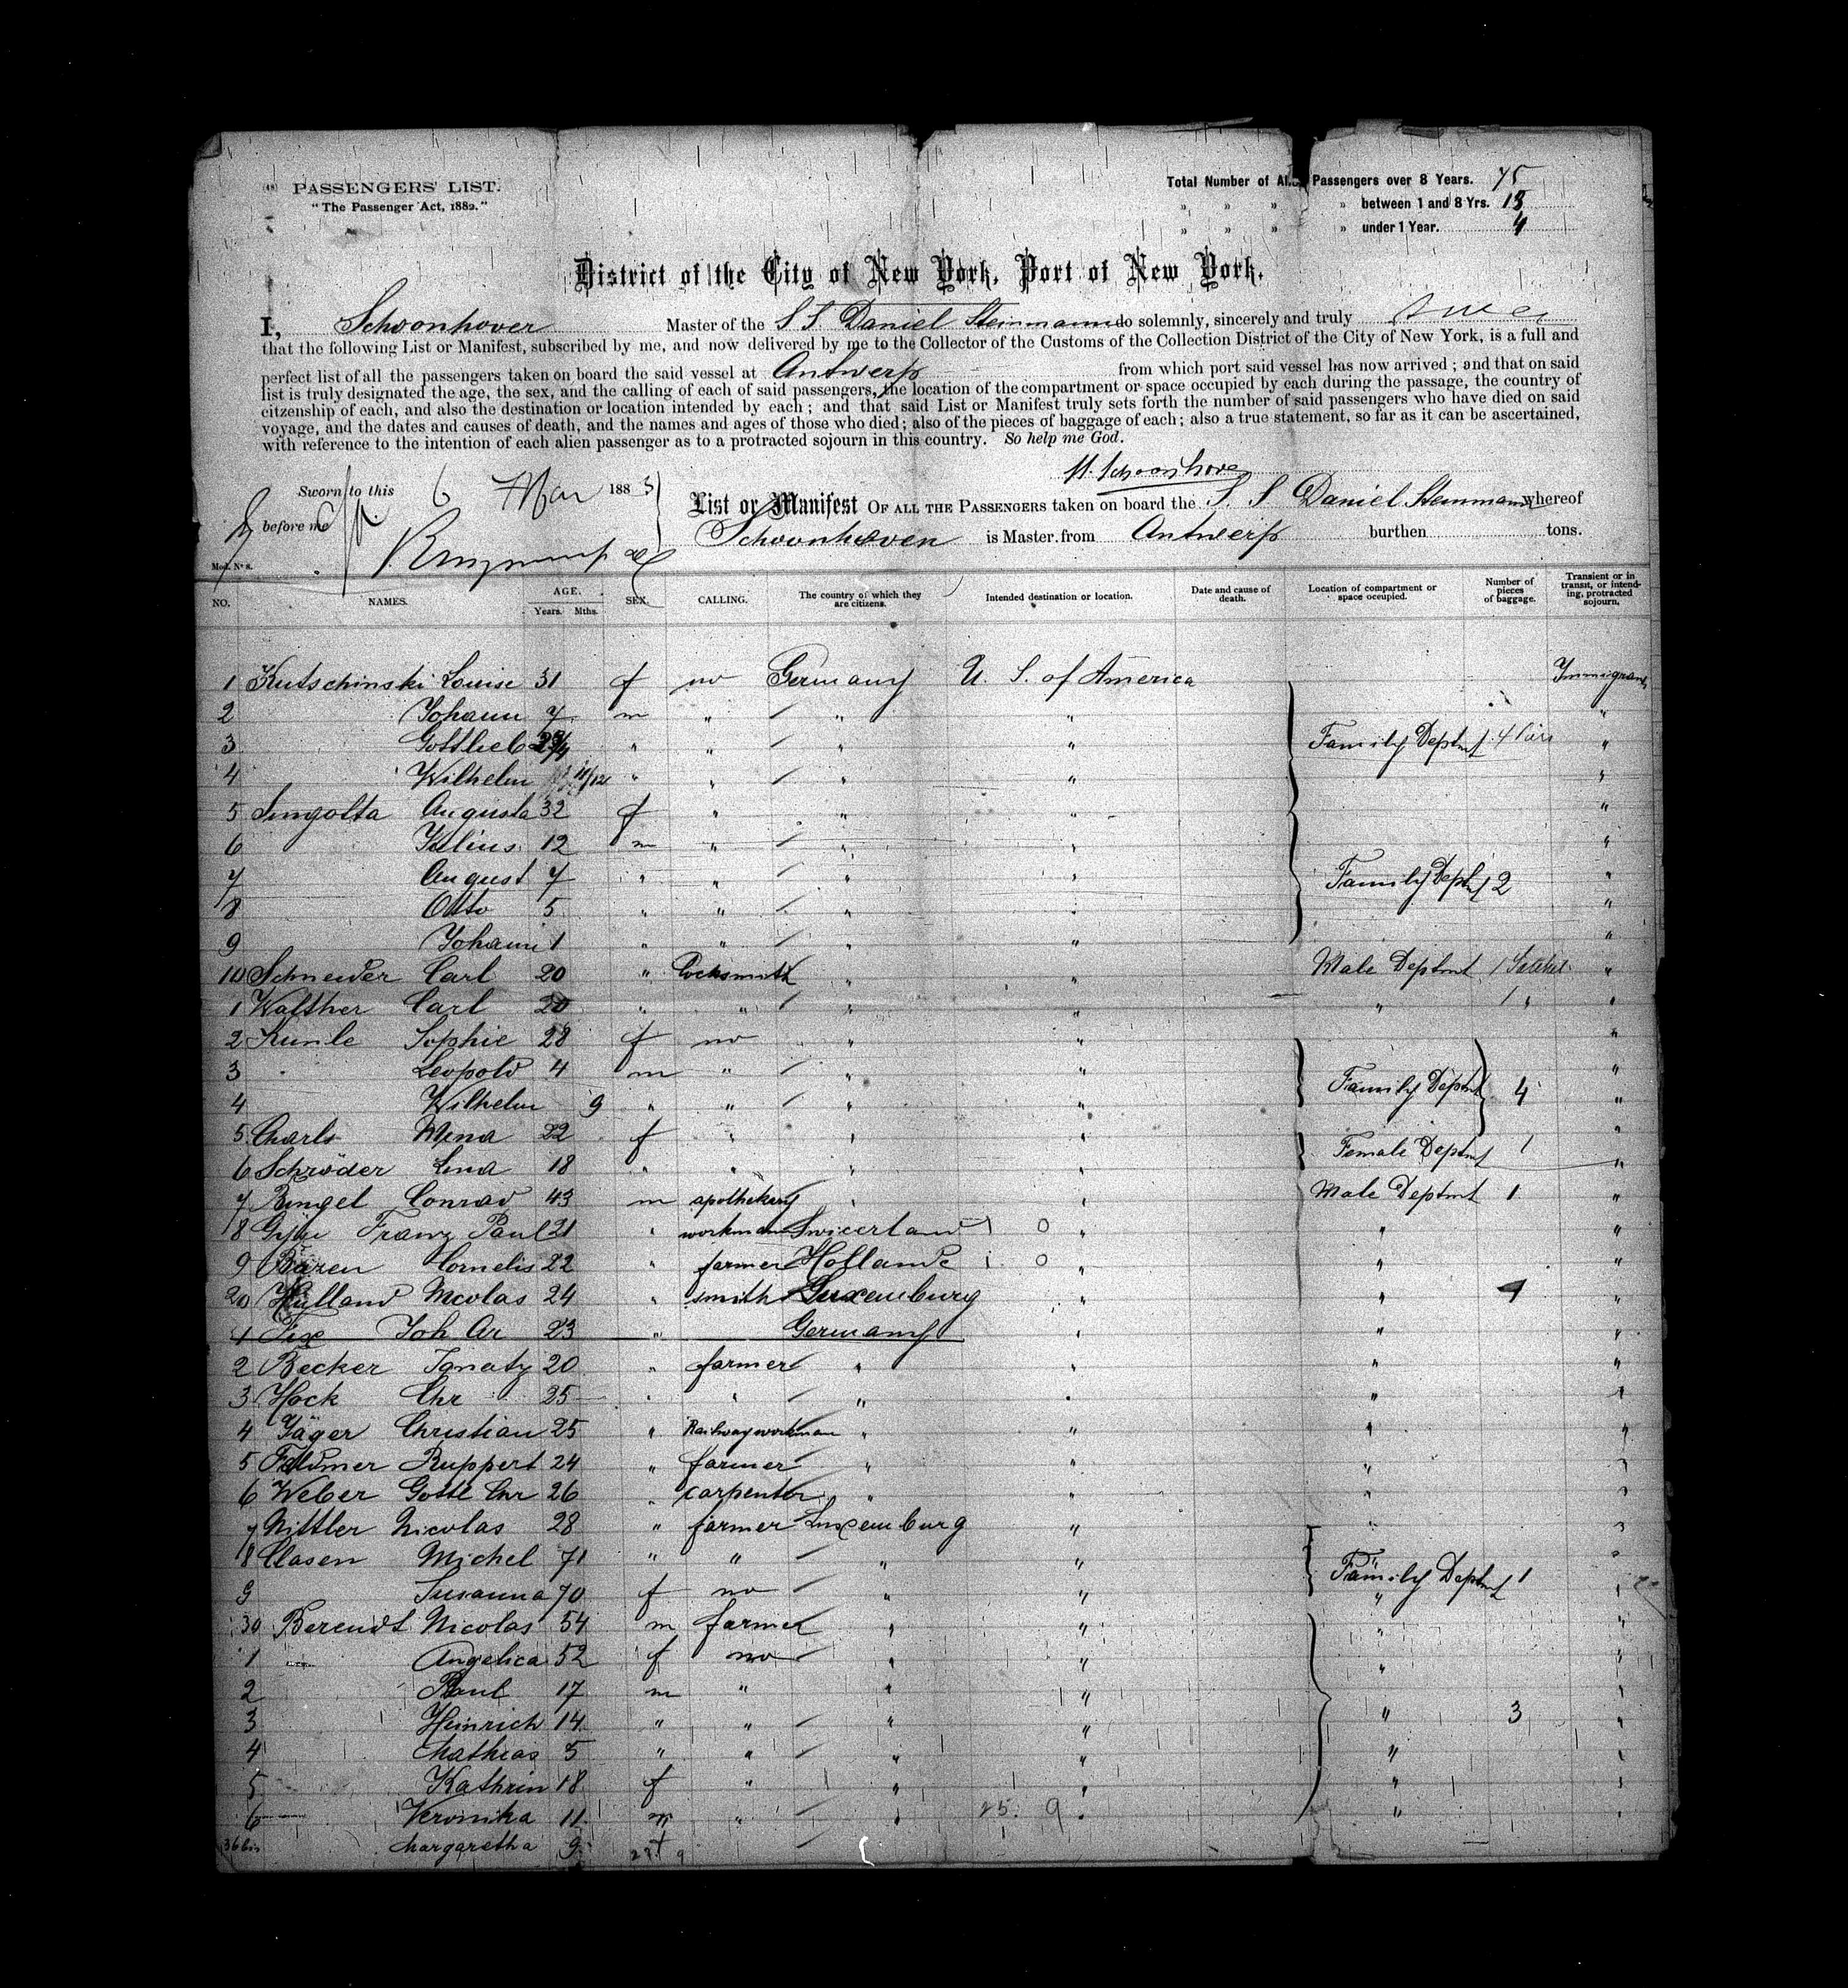 (48) PASSENGERS' LIST.
"The Passenger Act, 1882."
Total Number of Passengers over 8 Years. 75
" " " " between 1 and 8 Yrs. 18
" " " " under 1 Year. 4
District of the City of New York, Port of New York.
I, Schoonhover Master of the S S. Daniel Steinmann do solemnly, sincerely and truly swear
that the following List or Manifest, subscribed by me, and now delivered by me to the Collector of the Customs of the Collection District of the City of New York, is a full and
perfect list of all the passengers taken on board the said vessel at Antwerp from which port said vessel has now arrived; and that on said
list is truly designated the age, the sex, and the calling of each of said passengers, the location of the compartment or space occupied by each during the passage, the country of
citzenship of each, and also the destination or location intended by each; and that said List or Manifest truly sets forth the number of said passengers who have died on said
voyage, and the dates and causes of death, and the names and ages of those who died; also of the pieces of baggage of each; also a true statement, so far as it can be ascertained,
with reference to the intention of each alien passenger as to a protracted sojourn in this country. So help me God.
H. Schoonhoven
Sworn to this 6 Mar 1883
before me
List or Manifest OF ALL THE PASSENGERS taken on board the S. S Daniel Steinmann whereof
Schoonhoven is Master from Antwerp burthen tons.
Mod. No 8.
NO. NAMES. AGE. Years. Mths. SEX. CALLING. The country of which they are citizens. Intended destination or location. Date and cause of death. Location of compartment or space occupied. Number of pieces of baggage. Transient or in transit, or intending, protracted sojourn.
1 Kutschinski Louise 31 f no Germany U. S. of America Immigrant
2 Johann 7 m " " " "
3 Gottlieb " " " " Family Deptmt 4 "
4 Wilhelm 11/12 " " " " "
5 Singolta Augusta 32 f " " " "
6 Julius 12 m " " " "
7 August 7 " " " " Family Deptmt 2 "
8 Otto 5 " " " " "
9 Johann 1 " " " " "
10 Schneider Carl 20 " Locksmith " " Male Deptmt 1 Satchel "
1 Walther Carl 20 " " " " " 1 " "
2 Kunle Sophie 28 f no " " "
3 Leopold 4 m " " " Family Deptmt 4 "
4 Wilhelm 9 " " " " "
5 Charls Mena 22 f " " " Female Deptmt 1 "
6 Schröder Lena 18 " " " " "
7 Ringel Conrad 43 m apothekery " " Male Deptmt 1 "
8 Franz Paul 21 " workman Swicerland 1 0 " " "
9 Bären Cornelis 22 " farmer Hollande 1 0 " " "
20 Hulland Nicolas 24 " smith Luxemburg " " 1 "
1 Joh Ar 23 " Germany " " "
2 Becker Ignatz 20 " farmer " " " "
3 Hock Chr 25 " " " " " "
4 Jäger Christian 25 " Railway workman " " " "
5 Feldmer Ruppert 24 " farmer " " " "
6 Weber Gottl Chr 26 " carpenter " " " "
7 Nittler Nicolas 28 " farmer Luxemburg " " "
8 Clasen Michel 71 " " " " Family Deptmt 1 "
9 Susanna 70 f no " " " "
30 Berendt Nicolas 54 m farmer " " " "
1 Angelica 52 f no " " " "
2 Paul 17 m " " " "
3 Heinrich 14 " " " " " 3 "
4 Mathias 5 " " " " " "
5 Kathrin 18 f " " " " "
6 Veronika 11 " " 25. 9 " " "
36 bis Margaretha 9